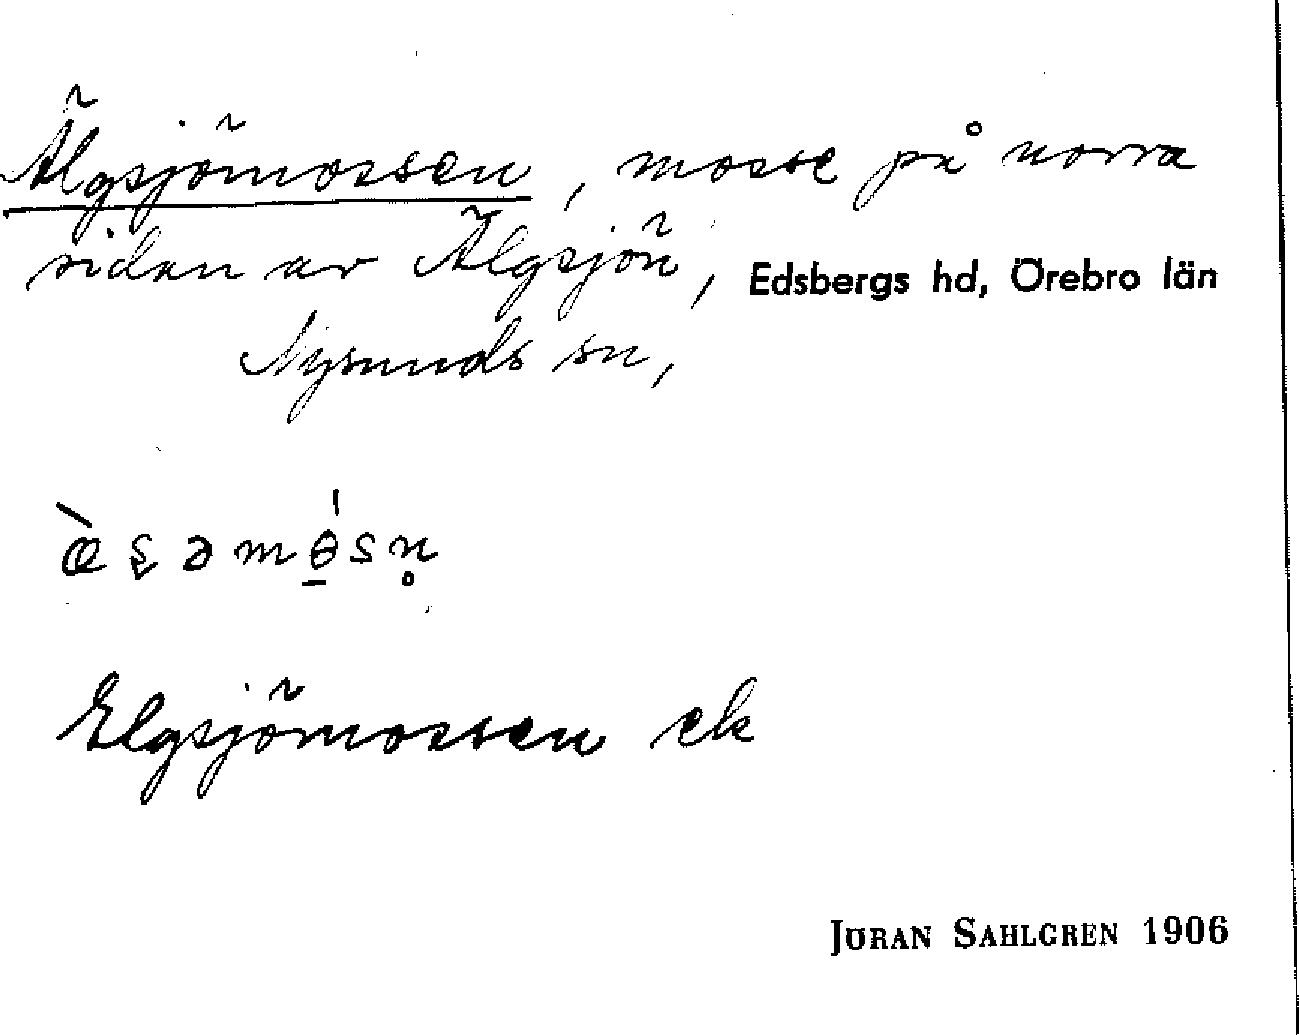 Älgsjömossen, mosse på norra
sidan av Älgsjön, Edsbergs hd, Örebro län
Nysunds sn,
Elgsjömossen ek
JÖRAN SAHLGREN 1906